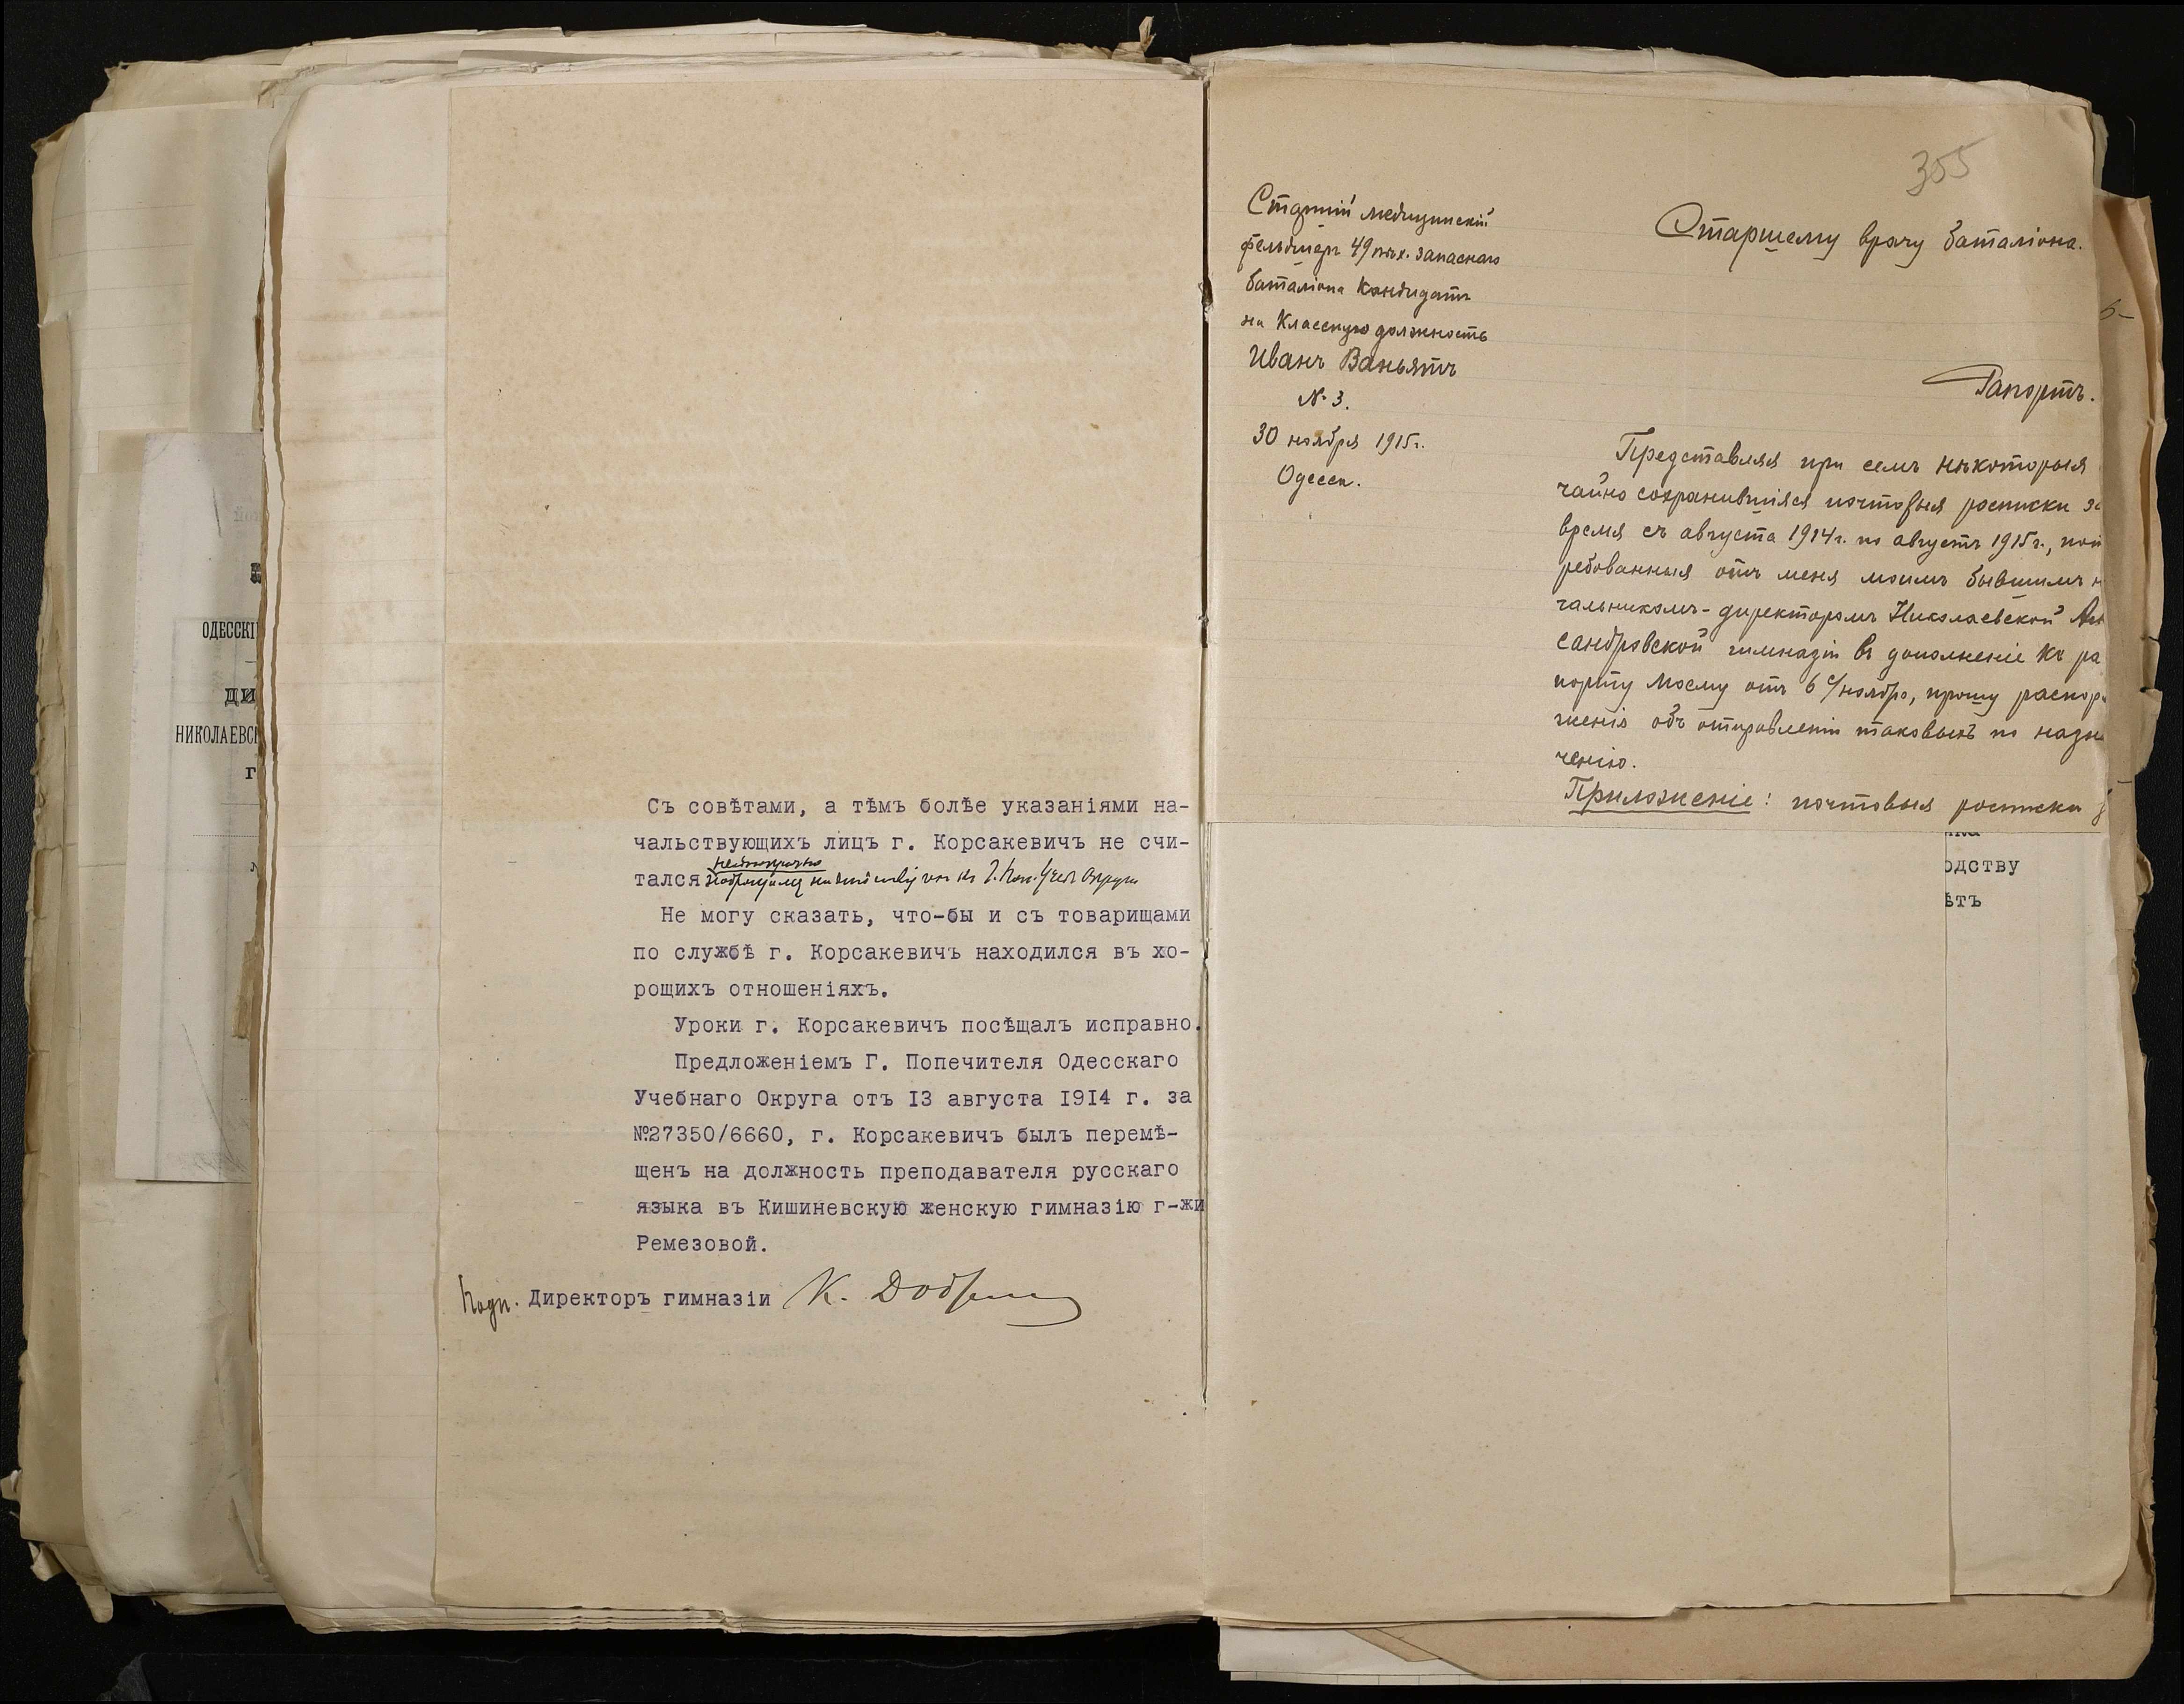 ОДЕССКІ
ДИ
НИКОЛАЕВС
Г
Съ совѣтами, а тѣмъ болѣе указаніями на-
чальствующихъ лицъ г. Корсакевичъ не счи-
тался
Не могу сказать, что-бы и съ товарищами
по службѣ г. Корсакевичъ находился въ хо-
рощихъ отношеніяхъ.
Уроки г. Корсакевичъ посѣщалъ исправно.
Предложеніемъ Г. Попечителя Одесскаго
Учебнаго Округа отъ I3 августа I9I4 г. за
№27350/6660, г. Корсакевичъ былъ перемѣ-
щенъ на должность преподавателя русскаго
языка въ Кишиневскую женскую гимназію г-жи
Ремезовой.
Подп. Директоръ гимназіи К.
355
Старшій медицинскій
фельдшеръ 49 пѣх. запаснаго
баталіона Кандидатъ
на Классную должность
Иванъ Ваньятъ
№ 3.
30 ноября 1915г.
Одесса.
Старшему врачу баталіона.
Рапортъ.
Представляя при семъ нѣкоторыя
чайно сохранившіяся почтовыя росписки за
время съ августа 1914г. по августъ 1915г., пот
ребованныя отъ меня моимъ бывшимъ н
чальникомъ-директоромъ Николаевской Але
сандровской гимназіи въ дополненіе къ ра
порту моему отъ 6 с/ноября, прошу распоря
женія объ отправленіи таковыхъ по назна
ченію.
Приложеніе: почтовыя росписки
одству
ѣтъ